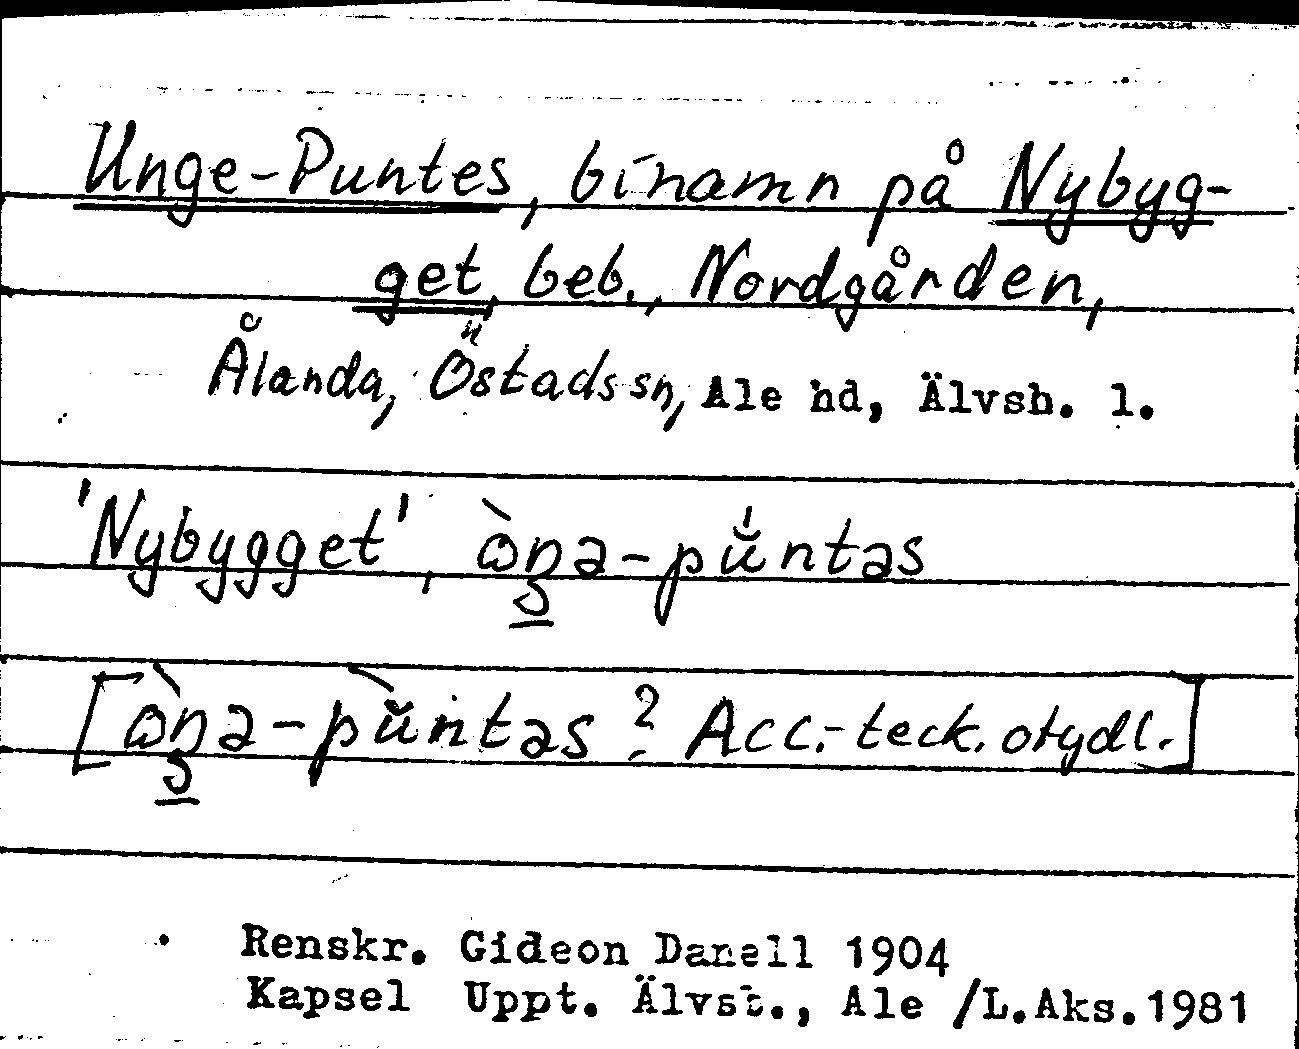 Unge-Puntes, binamn på Nybyg-
get, beb., Nordgården,
Ålanda, Östads sn, Ale hd, Älvsb. l.
'Nybygget', òŋə-pŭ́ntəs
[ òŋə-pŭ̀ntəs ? Acc.-teck. otydl. ]
Renskr. Gideon Danell 1904
Kapsel Uppt. Älvsb., Ale /L.Aks.1981